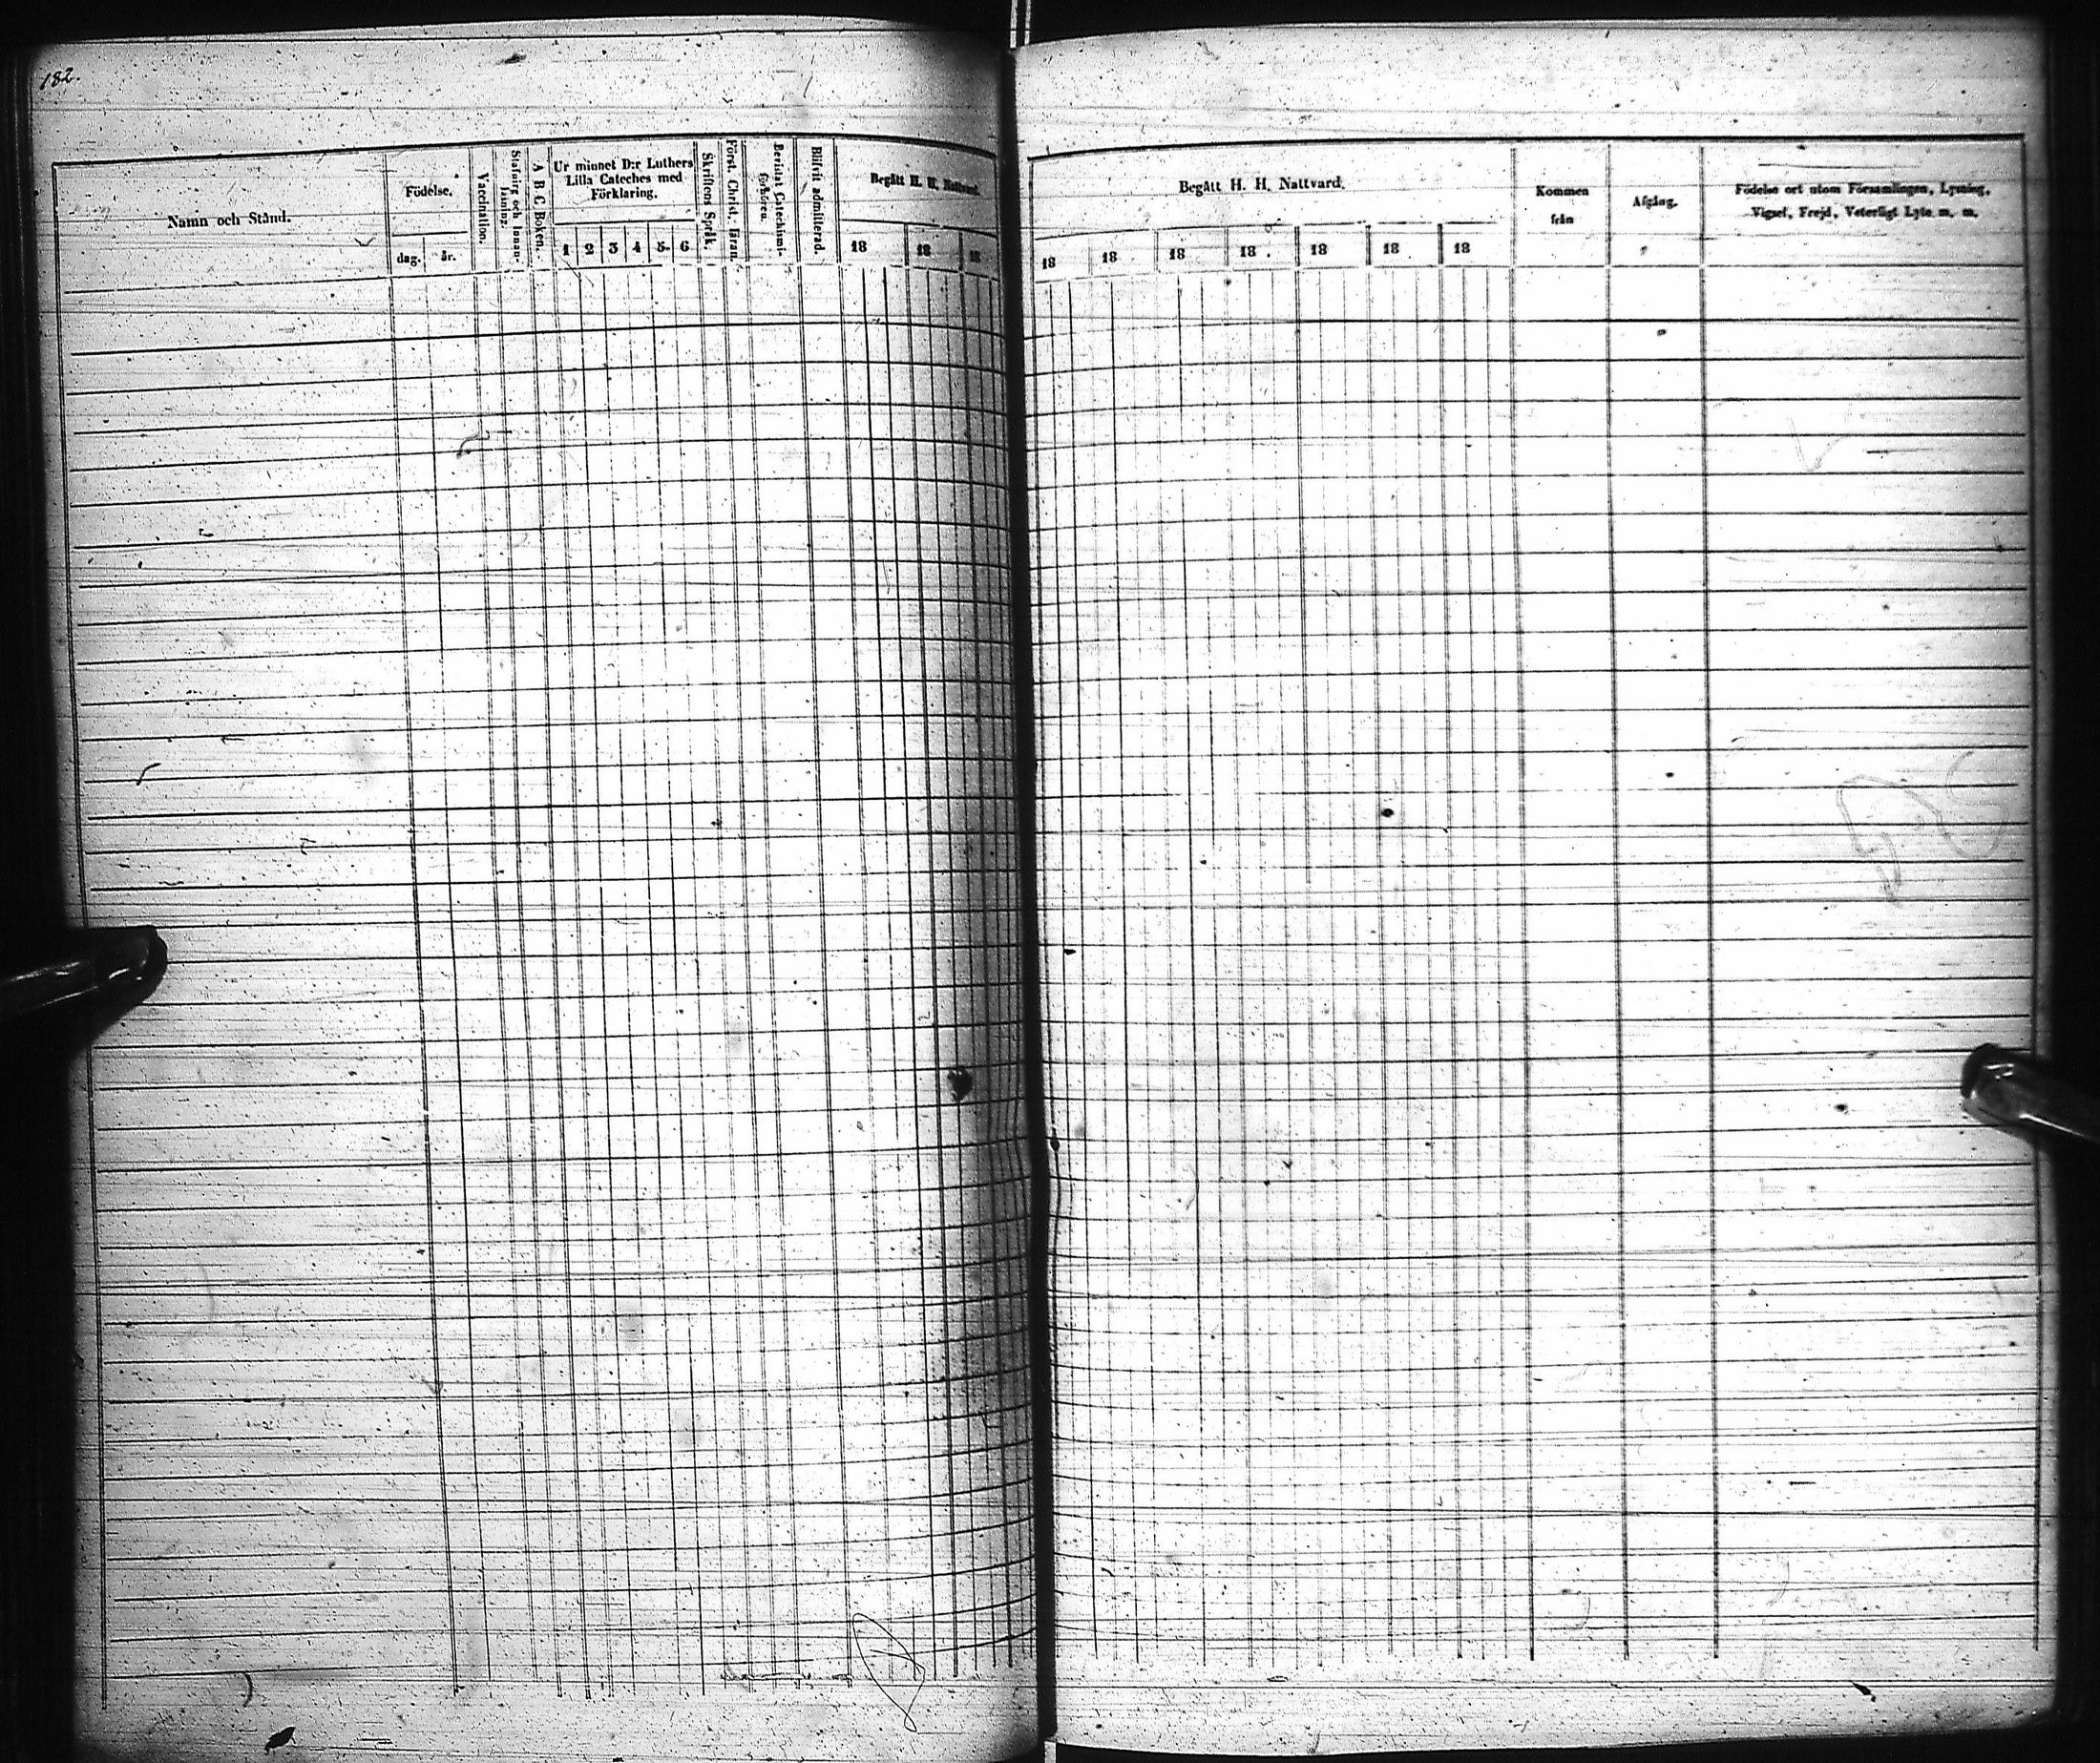 182.
Namn och Stånd.
Födelse.
dag.
år.
Vaccination.
Stafning och Innan-
läsning.
A B C Boken.
Ur minnet D:r Luthers
Lilla Cateches med
Förklaring.
1 2 3 4 5. 6
Skriftens Språk.
Först. Christ. läran.
Bevistat Catechismi-
förhören.
Blifvit admitterad.
Begått H. H. Nattvard.
18 18 18
Begått H. H. Nattvard.
18 18 18 18 18 18 18
Kommen
från
Afgång.
Födelse ort utom Församlingen, Lysning,
Vigsel, Frejd, Veterligt Lyte m. m.